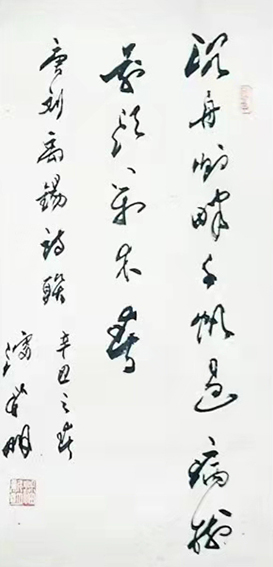 沉舟侧畔千帆过病树
前头万木春
唐刘禹锡诗联
辛丑之春
明